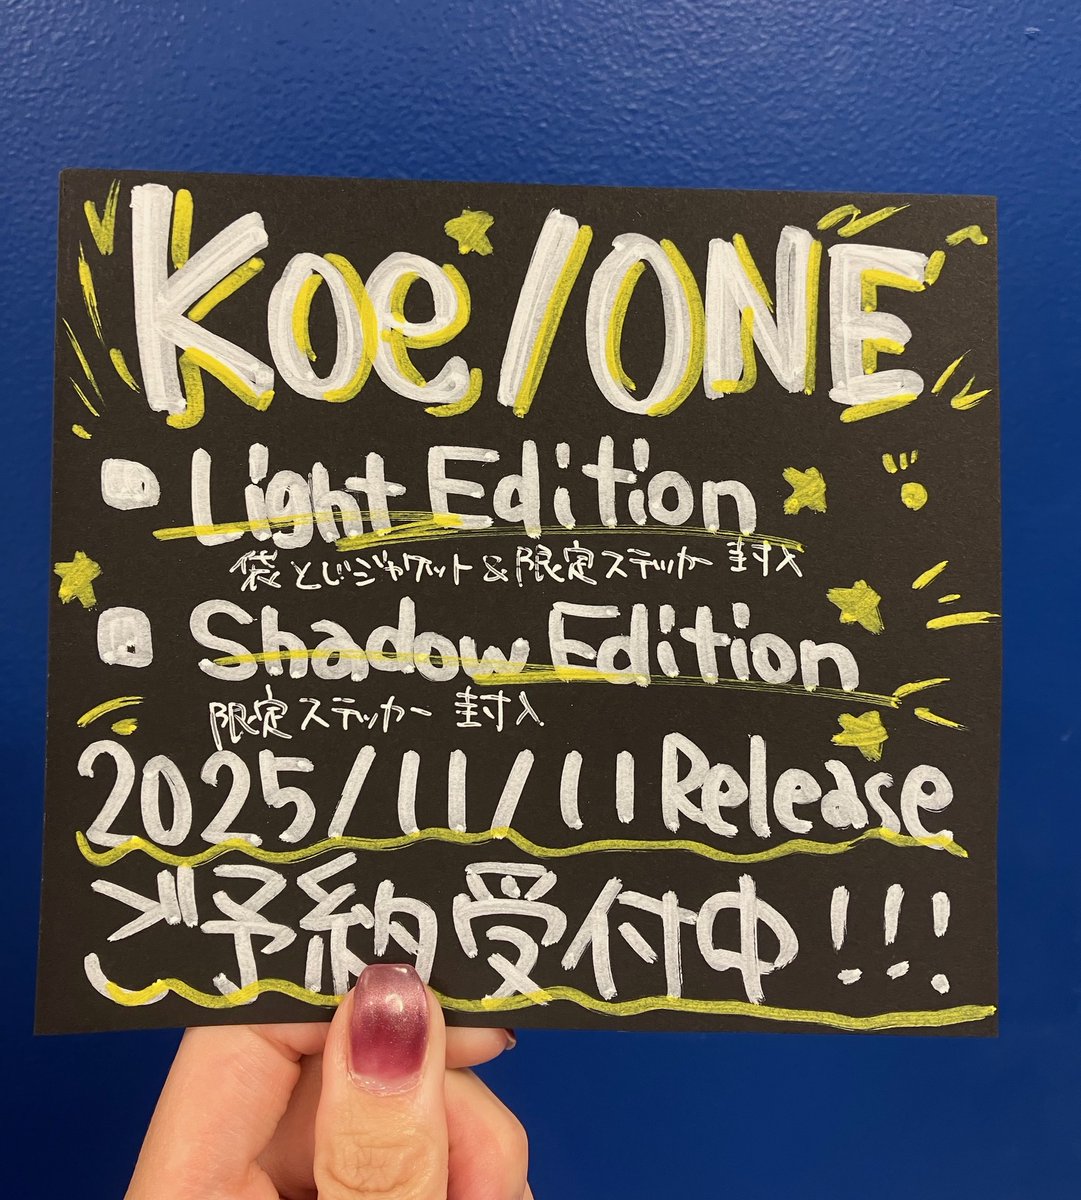 Koe/ONE
Light Edition
袋とじジャケット&限定ステッカー封入
Shadow Edition
限定ステッカー封入
2025/11/11 Release
ご予約受付中!!!